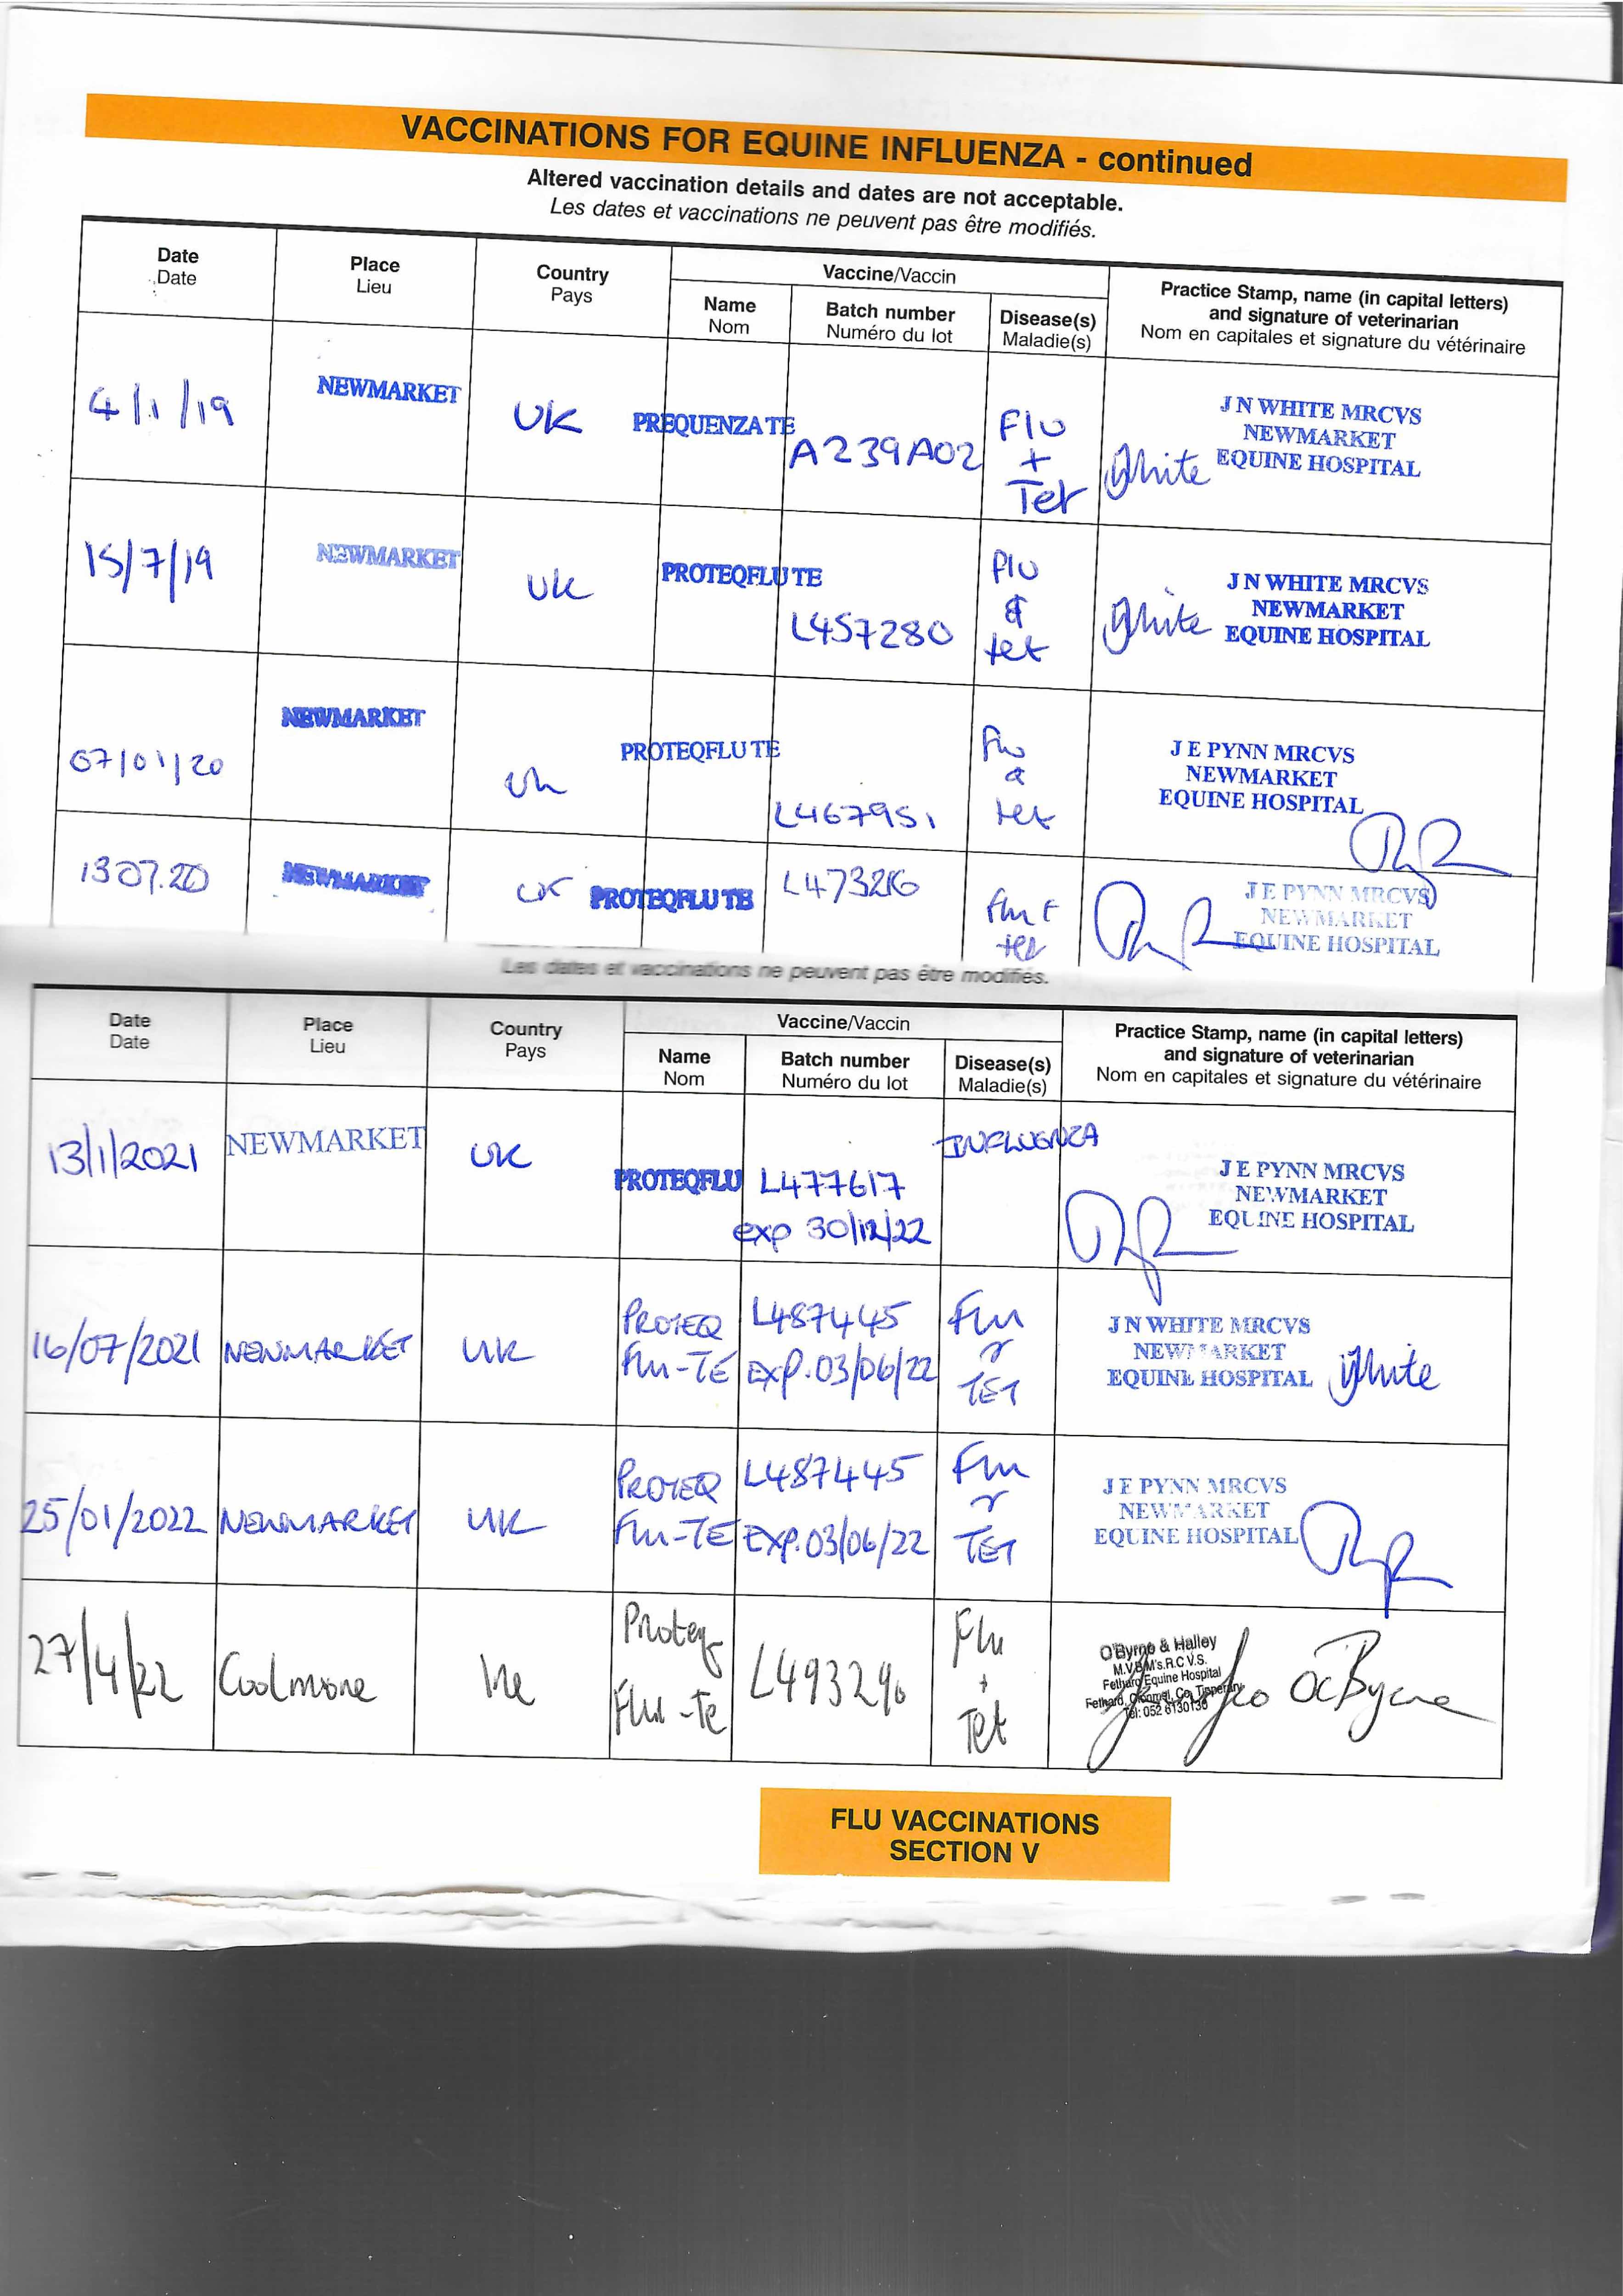 VACCINATIONS FOR EQUINE INFLUENZA - continued
Altered vaccination details and dates are not acceptable.
Les dates et vaccinations ne peuvent pas être modifiés.
Date
Date
Place
Lieu
Country
Pays
Vaccine/Vaccin
Name
Nom
Batch number
Numéro du lot
Disease(s)
Maladie(s)
Practice Stamp, name (in capital letters)
and signature of veterinarian
Nom en capitales et signature du vétérinaire
4/1/19
NEWMARKET
UK
PREQUENZA TE
A239A02
Flu
+
Tet
White
J N WHITE MRCVS
NEWMARKET
EQUINE HOSPITAL
15/7/19
NEWMARKET
UK
PROTEQFLU TE
L457280
Flu
&
tet
White
J N WHITE MRCVS
NEWMARKET
EQUINE HOSPITAL
07/01/20
NEWMARKET
UK
PROTEQFLU TE
L467951
Flu
&
tet
J E PYNN MRCVS
NEWMARKET
EQUINE HOSPITAL
13.07.20
NEWMARKET
UK
PROTEQFLU TE
L473216
Flu &
tet
J E PYNN MRCVS
NEWMARKET
EQUINE HOSPITAL
Les dates et vaccinations ne peuvent pas être modifiés.
Date
Date
Place
Lieu
Country
Pays
Vaccine/Vaccin
Name
Nom
Batch number
Numéro du lot
Disease(s)
Maladie(s)
Practice Stamp, name (in capital letters)
and signature of veterinarian
Nom en capitales et signature du vétérinaire
13/1/2021
NEWMARKET
UK
PROTEQFLU
L477617
exp 30/12/22
INFLUENZA
J E PYNN MRCVS
NEWMARKET
EQUINE HOSPITAL
16/07/2021
NEWMARKET
UK
PROTEQ
Flu-TE
L487445
EXP.03/06/22
Flu
&
TET
J N WHITE MRCVS
NEWMARKET
EQUINE HOSPITAL
White
25/01/2022
NEWMARKET
UK
PROTEQ
Flu-TE
L487445
EXP.03/06/22
Flu
&
TET
J E PYNN MRCVS
NEWMARKET
EQUINE HOSPITAL
27/4/22
Coolmore
Ire
Proteq
Flu-Te
L493290
Flu
+
Tet
O'Byrne & Halley
M.V.B M's.R.C.V.S.
Fethard Equine Hospital
Fethard, Clonmel, Co. Tipperary
Tel: 052 6130136
O'Byrne
FLU VACCINATIONS
SECTION V